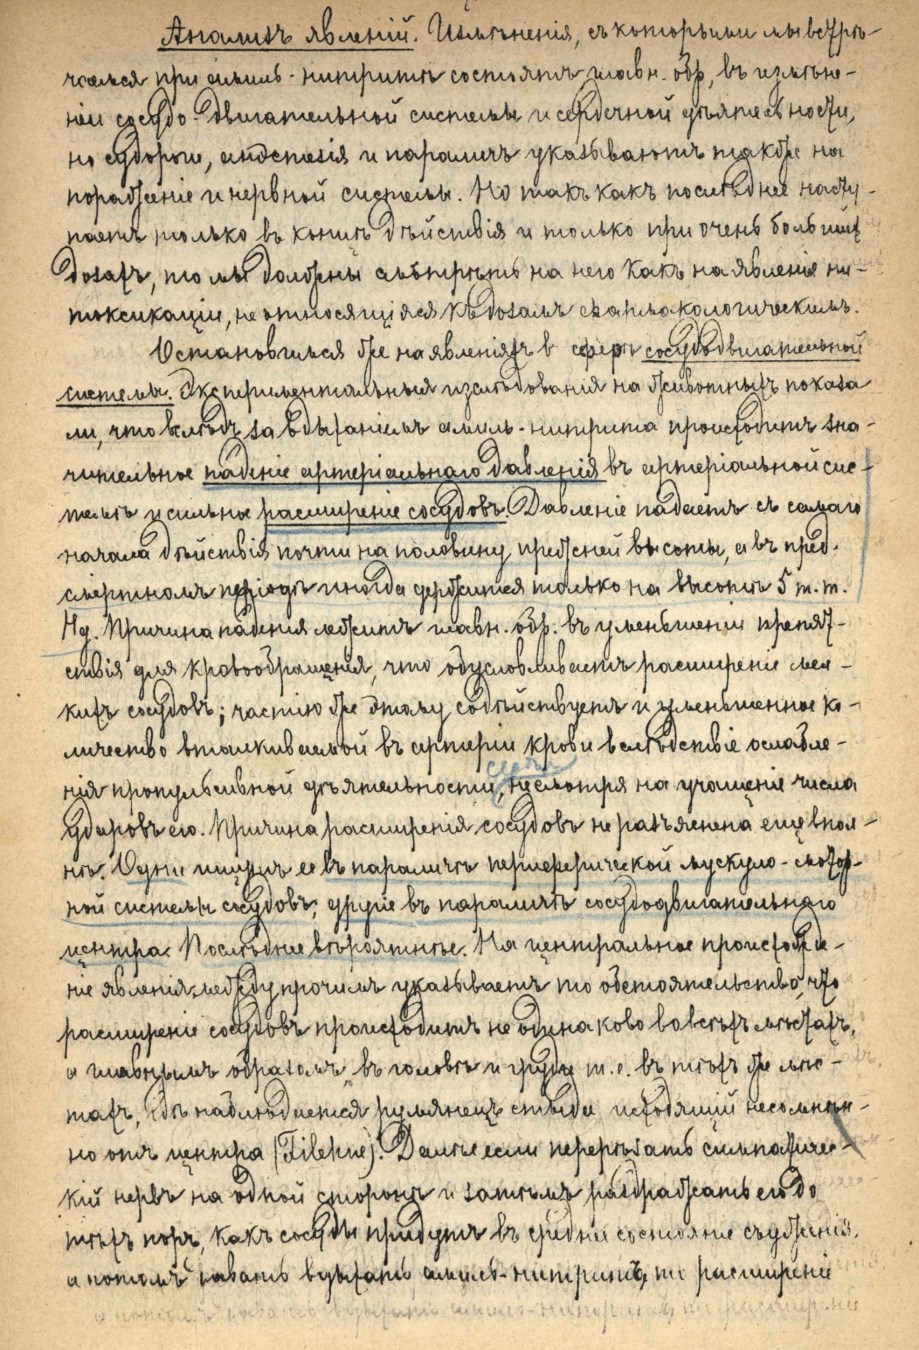 Анализъ явленій. Измѣненія, съ которыми мы встрѣ-
чаемся при амилъ-нитритѣ состоятъ главн. обр. въ измѣне-
ніи сосудо-двигательной системы и сердечной дѣятельности,
но судороги, анэстезія и параличъ указываютъ также на
пораженіе и нервной системы. Но такъ какъ послѣднее насту-
паетъ только въ концѣ дѣйствія и только при очень большихъ
дозахъ, то мы должны смотрѣть на него какъ на явленіе ин-
токсикаціи, не относящіяся къ дозамъ фармакологическимъ.
Остановимся же на явленіяхъ въ сферѣ сосудодвигательной
системы. Экспериментальныя изслѣдованія на животныхъ показа
ли, что вслѣдъ за вдыханіемъ амилъ-нитрита происходитъ зна-
чительное паденіе артеріальнаго давленія въ артеріальной сис-
темѣ и сильное расширеніе сосудовъ. Давленіе падаетъ съ самаго
начала дѣйствія почти на половину прежней высоты, а въ пред-
смертномъ періодѣ иногда держится только на высотѣ 5 m.m.
Hg. Причина паденія лежитъ главн. обр. въ уменьшеніи препят-
ствія для кровообращенія, что обусловливаетъ расширеніе мел-
кихъ сосудовъ; частію же этому содѣйствуетъ и уменьшенное ко-
личество вталкиваемой въ артеріи крови вслѣдствіе ослабле-
нія пропульсивной дѣятельности сердца, несмотря на учащеніе числа
ударовъ его. Причина расширенія сосудовъ не разъяснена еще впол-
нѣ. Одни ищутъ ее въ параличѣ периферической мускуло-мотор-
ной системы сосудовъ, другіе въ параличѣ сосудодвигательнаго
центра. Послѣднее вѣроятнѣе. На центральное происхожде-
ніе явленія между прочимъ указываетъ то обстоятельство, что
расширеніе сосудовъ происходитъ не одинаково во всѣхъ мѣстахъ,
а главнымъ образомъ въ головѣ и груди т.е. въ тѣхъ же мѣс-
тахъ, гдѣ наблюдается румянецъ стыда исходящій несомнѣн-
но отъ центра (Filehne). Далѣе если перерѣзать симпатичес-
кій нервъ на одной сторонѣ и затѣмъ раздражать его до
тѣхъ поръ, какъ сосуды придутъ въ среднее состояніе съуженія,
а потомъ давать вдыхать амилъ-нитритъ, то расширеніе